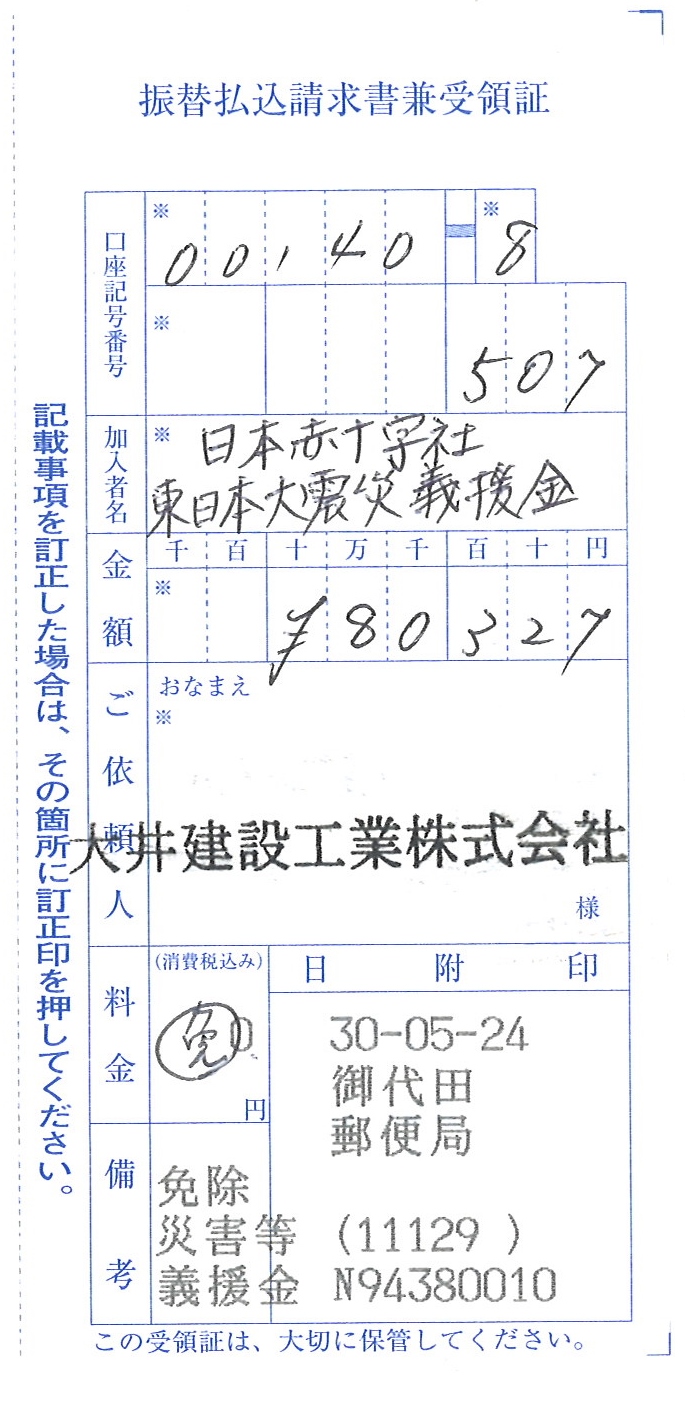 振替払込請求書兼受領証
口座記号番号
※ ※
00140-8
※
507
加入者名
※ 日本赤十字社
東日本大震災義援金
金額
千 百 十 万 千 百 十 円
※
¥80327
ご依頼人
おなまえ
※
大井建設工業株式会社
様
料金
(消費税込み)
免 0
円
日附印
30-05-24
御代田
郵便局
備考
免除
災害等 (11129 )
義援金 N94380010
この受領証は、大切に保管してください。
記載事項を訂正した場合は、その箇所に訂正印を押してください。